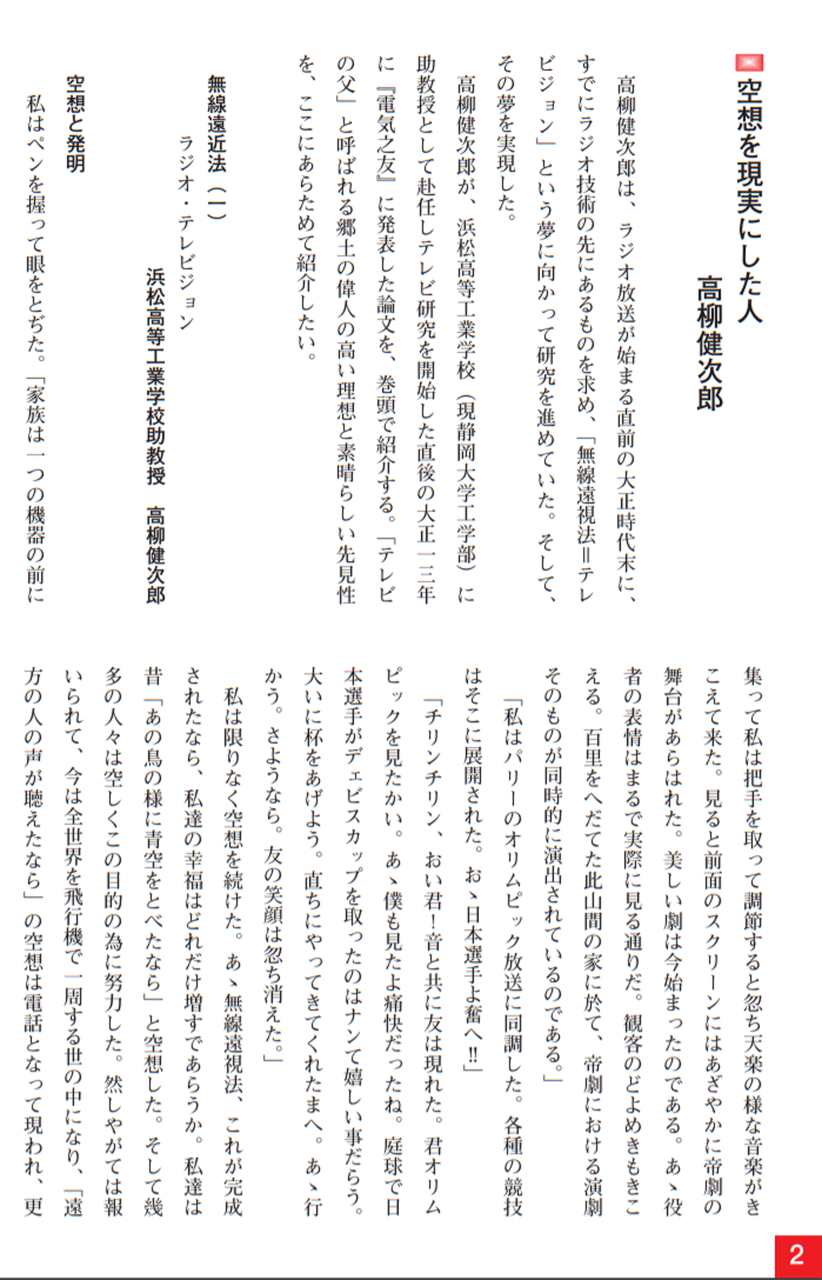 空想を現実にした人
高柳健次郎
高柳健次郎は、ラジオ放送が始まる直前の大正時代末に、
すでにラジオ技術の先にあるものを求め、「無線遠視法＝テレ
ビジョン」という夢に向かって研究を進めていた。そして、
その夢を実現した。
高柳健次郎が、浜松高等工業学校（現静岡大学工学部）に
助教授として赴任しテレビ研究を開始した直後の大正一三年
に『電気之友』に発表した論文を、巻頭で紹介する。「テレビ
の父」と呼ばれる郷土の偉人の高い理想と素晴らしい先見性
を、ここにあらためて紹介したい。
無線遠近法（一）
ラジオ・テレビジョン
浜松高等工業学校助教授　高柳健次郎
空想と発明
私はペンを握って眼をとぢた。「家族は一つの機器の前に
集って私は把手を取って調節すると忽ち天楽の様な音楽がき
こえて来た。見ると前面のスクリーンにはあざやかに帝劇の
舞台があらはれた。美しい劇は今始まったのである。あゝ役
者の表情はまるで実際に見る通りだ。観客のどよめきもきこ
える。百里をへだてた此山間の家に於て、帝劇における演劇
そのものが同時的に演出されているのである。」
「私はパリーのオリムピック放送に同調した。各種の競技
はそこに展開された。おゝ日本選手よ奮へ!!」
「チリンチリン、おい君！音と共に友は現れた。君オリム
ピックを見たかい。あゝ僕も見たよ痛快だったね。庭球で日
本選手がデェビスカップを取ったのはナンて嬉しい事だらう。
大いに杯をあげよう。直ちにやってきてくれたまへ。あゝ行
かう。さようなら。友の笑顔は忽ち消えた。」
私は限りなく空想を続けた。あゝ無線遠視法、これが完成
されたなら、私達の幸福はどれだけ増すであらうか。私達は
昔「あの鳥の様に青空をとべたなら」と空想した。そして幾
多の人々は空しくこの目的の為に努力した。然しやがては報
いられて、今は全世界を飛行機で一周する世の中になり、「遠
方の人の声が聴えたなら」の空想は電話となって現われ、更
2